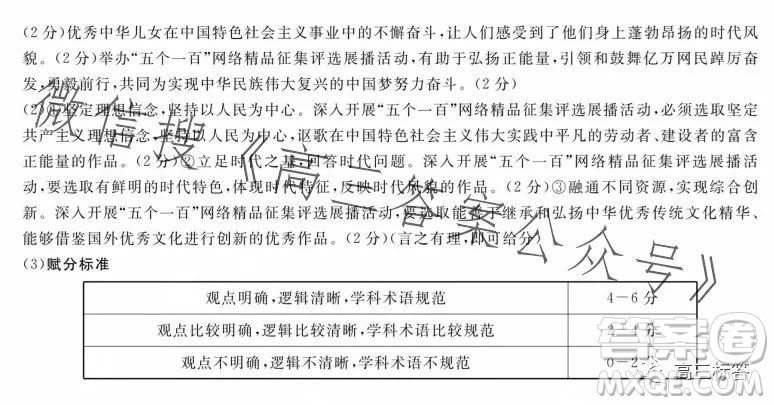 (2分)优秀中华儿女在中国特色社会主义事业中的不懈奋斗,让人们感受到了他们身上蓬勃昂扬的时代风
貌。(2分)举办“五个一百”网络精品征集评选展播活动,有助于弘扬正能量,引领和鼓舞亿万网民踔厉奋
发,勇毅前行,共同为实现中华民族伟大复兴的中国梦努力奋斗。(2分)
(2)①坚定理想信念,坚持以人民为中心。深入开展“五个一百”网络精品征集评选展播活动,必须选取坚定
共产主义理想信念,坚持以人民为中心,讴歌在中国特色社会主义伟大实践中平凡的劳动者、建设者的富含
正能量的作品。(2分)②立足时代之基,回答时代问题。深入开展“五个一百”网络精品征集评选展播活
动,要选取有鲜明的时代特色,体现时代特征,反映时代风貌的作品。(2分)③融通不同资源,实现综合创
新。深入开展“五个一百”网络精品征集评选展播活动,要选取能善于继承和弘扬中华优秀传统文化精华、
能够借鉴国外优秀文化进行创新的优秀作品。(2分)(言之有理,即可给分)
(3)赋分标准
观点明确,逻辑清晰,学科术语规范 4-6分
观点比较明确,逻辑比较清晰,学科术语比较规范 分
观点不明确,逻辑不清晰,学科术语不规范 0-2分
微信搜《高三答案公众号》
答案圈
高三标答
MXQE.COM